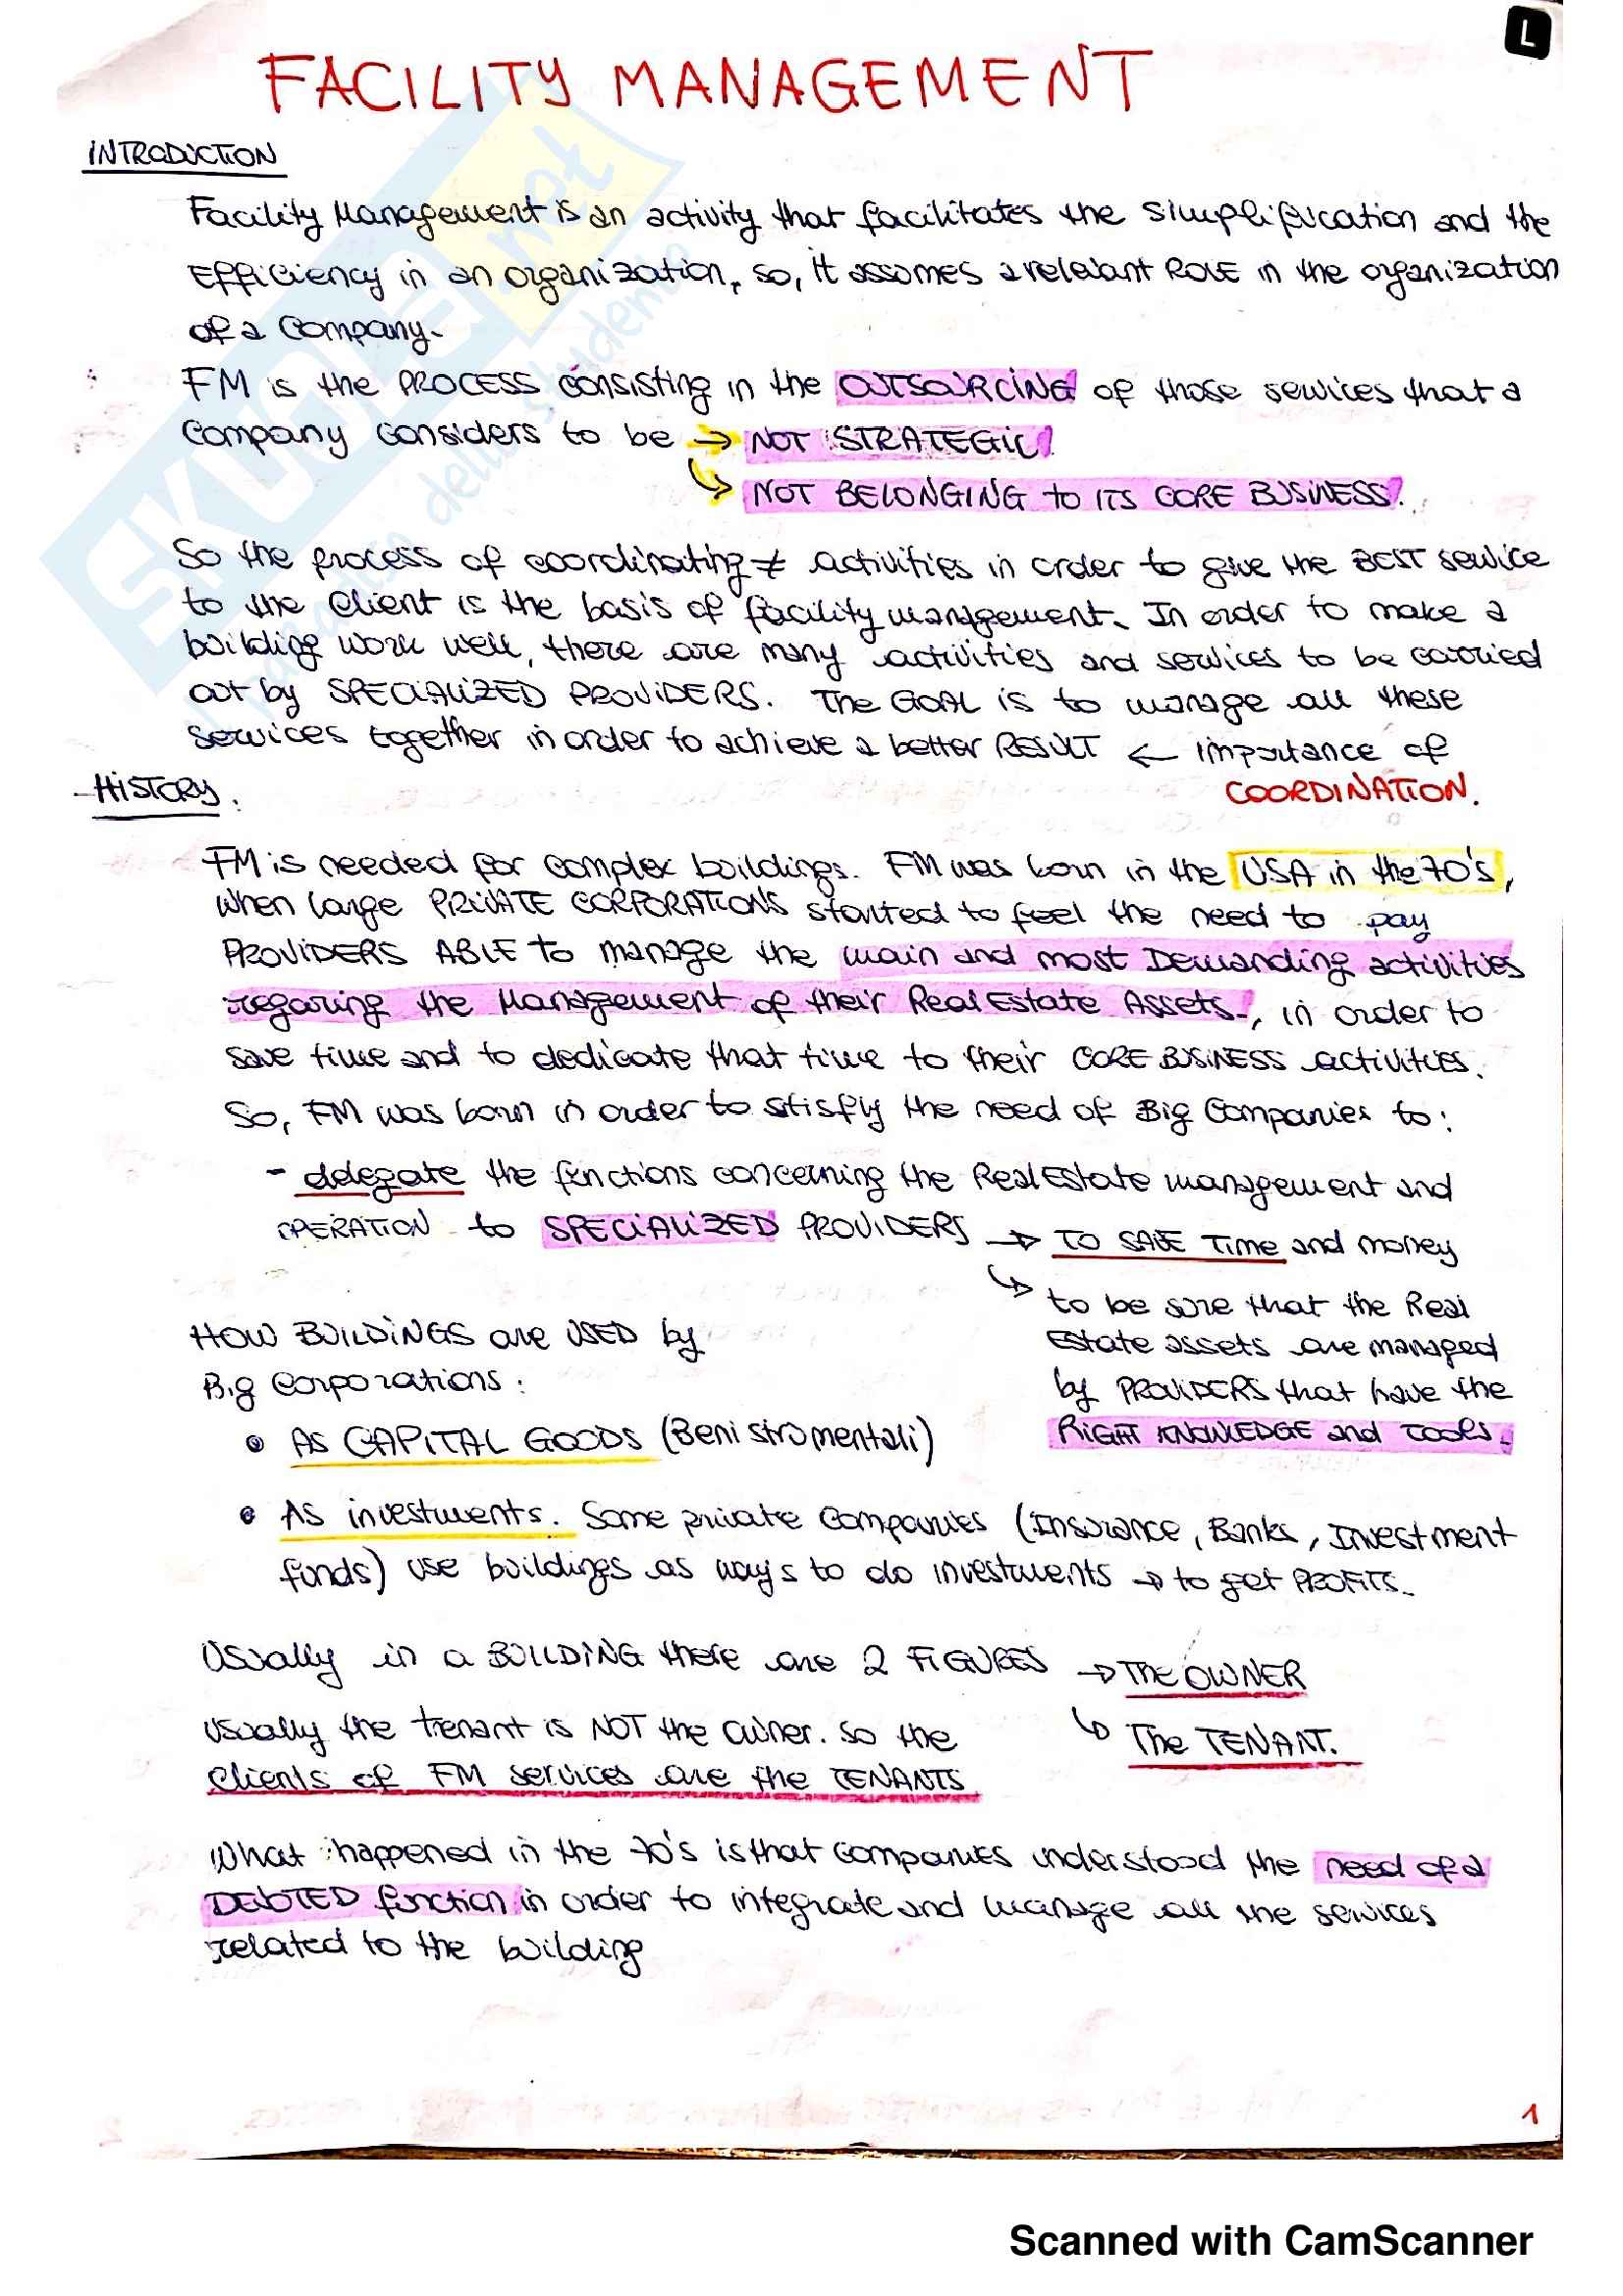 L
FACILITY MANAGEMENT
INTRODUCTION
Facility Management is an activity that facilitates the simplification and the
Efficiency in an organization, so, it assumes a relevant ROLE in the organization
of a company.
FM is the PROCESS consisting in the OUTSOURCING of those services that a
Company considers to be → NOT STRATEGIC
↳ NOT BELONGING to ITS CORE BUSINESS.
So the process of coordinating ≠ activities in order to give the BEST service
to the client is the basis of facility management. In order to make a
building work well, there are many activities and services to be carried
out by SPECIALIZED PROVIDERS. The GOAL is to manage all these
services together in order to achieve a better RESULT ← importance of
COORDINATION.
- HISTORY.
FM is needed for complex buildings. FM was born in the USA in the 70's,
when large PRIVATE CORPORATIONS started to feel the need to pay
PROVIDERS ABLE to manage the main and most Demanding activities
regaring the Management of their Real Estate Assets, in order to
save time and to dedicate that time to their CORE BUSINESS activities.
So, FM was born in order to stisfly the need of Big Companies to:
- delegate the functions concerning the Real Estate management and
OPERATION to SPECIALIZED PROVIDERS → TO SAVE Time and money
↳ to be sure that the Real
Estate assets are managed
by PROVIDERS that have the
RIGHT KNOWLEDGE and TOOLS.
HOW BUILDINGS are USED by
Big Corporations:
• AS CAPITAL GOODS (Beni strumentali)
• As investments. Some private companies (Insurance, Banks, Investment
funds) use buildings as ways to do investments → to get PROFITS.
Usually in a BUILDING there are 2 FIGURES → The OWNER
↳ The TENANT.
Usually the tenant is NOT the owner. So the
Clients of FM services are the TENANTS
What happened in the 70's is that companies understood the need of a
DEVOTED function in order to integrate and manage all the services
related to the building
1
Scanned with CamScanner
SKUOLA.net